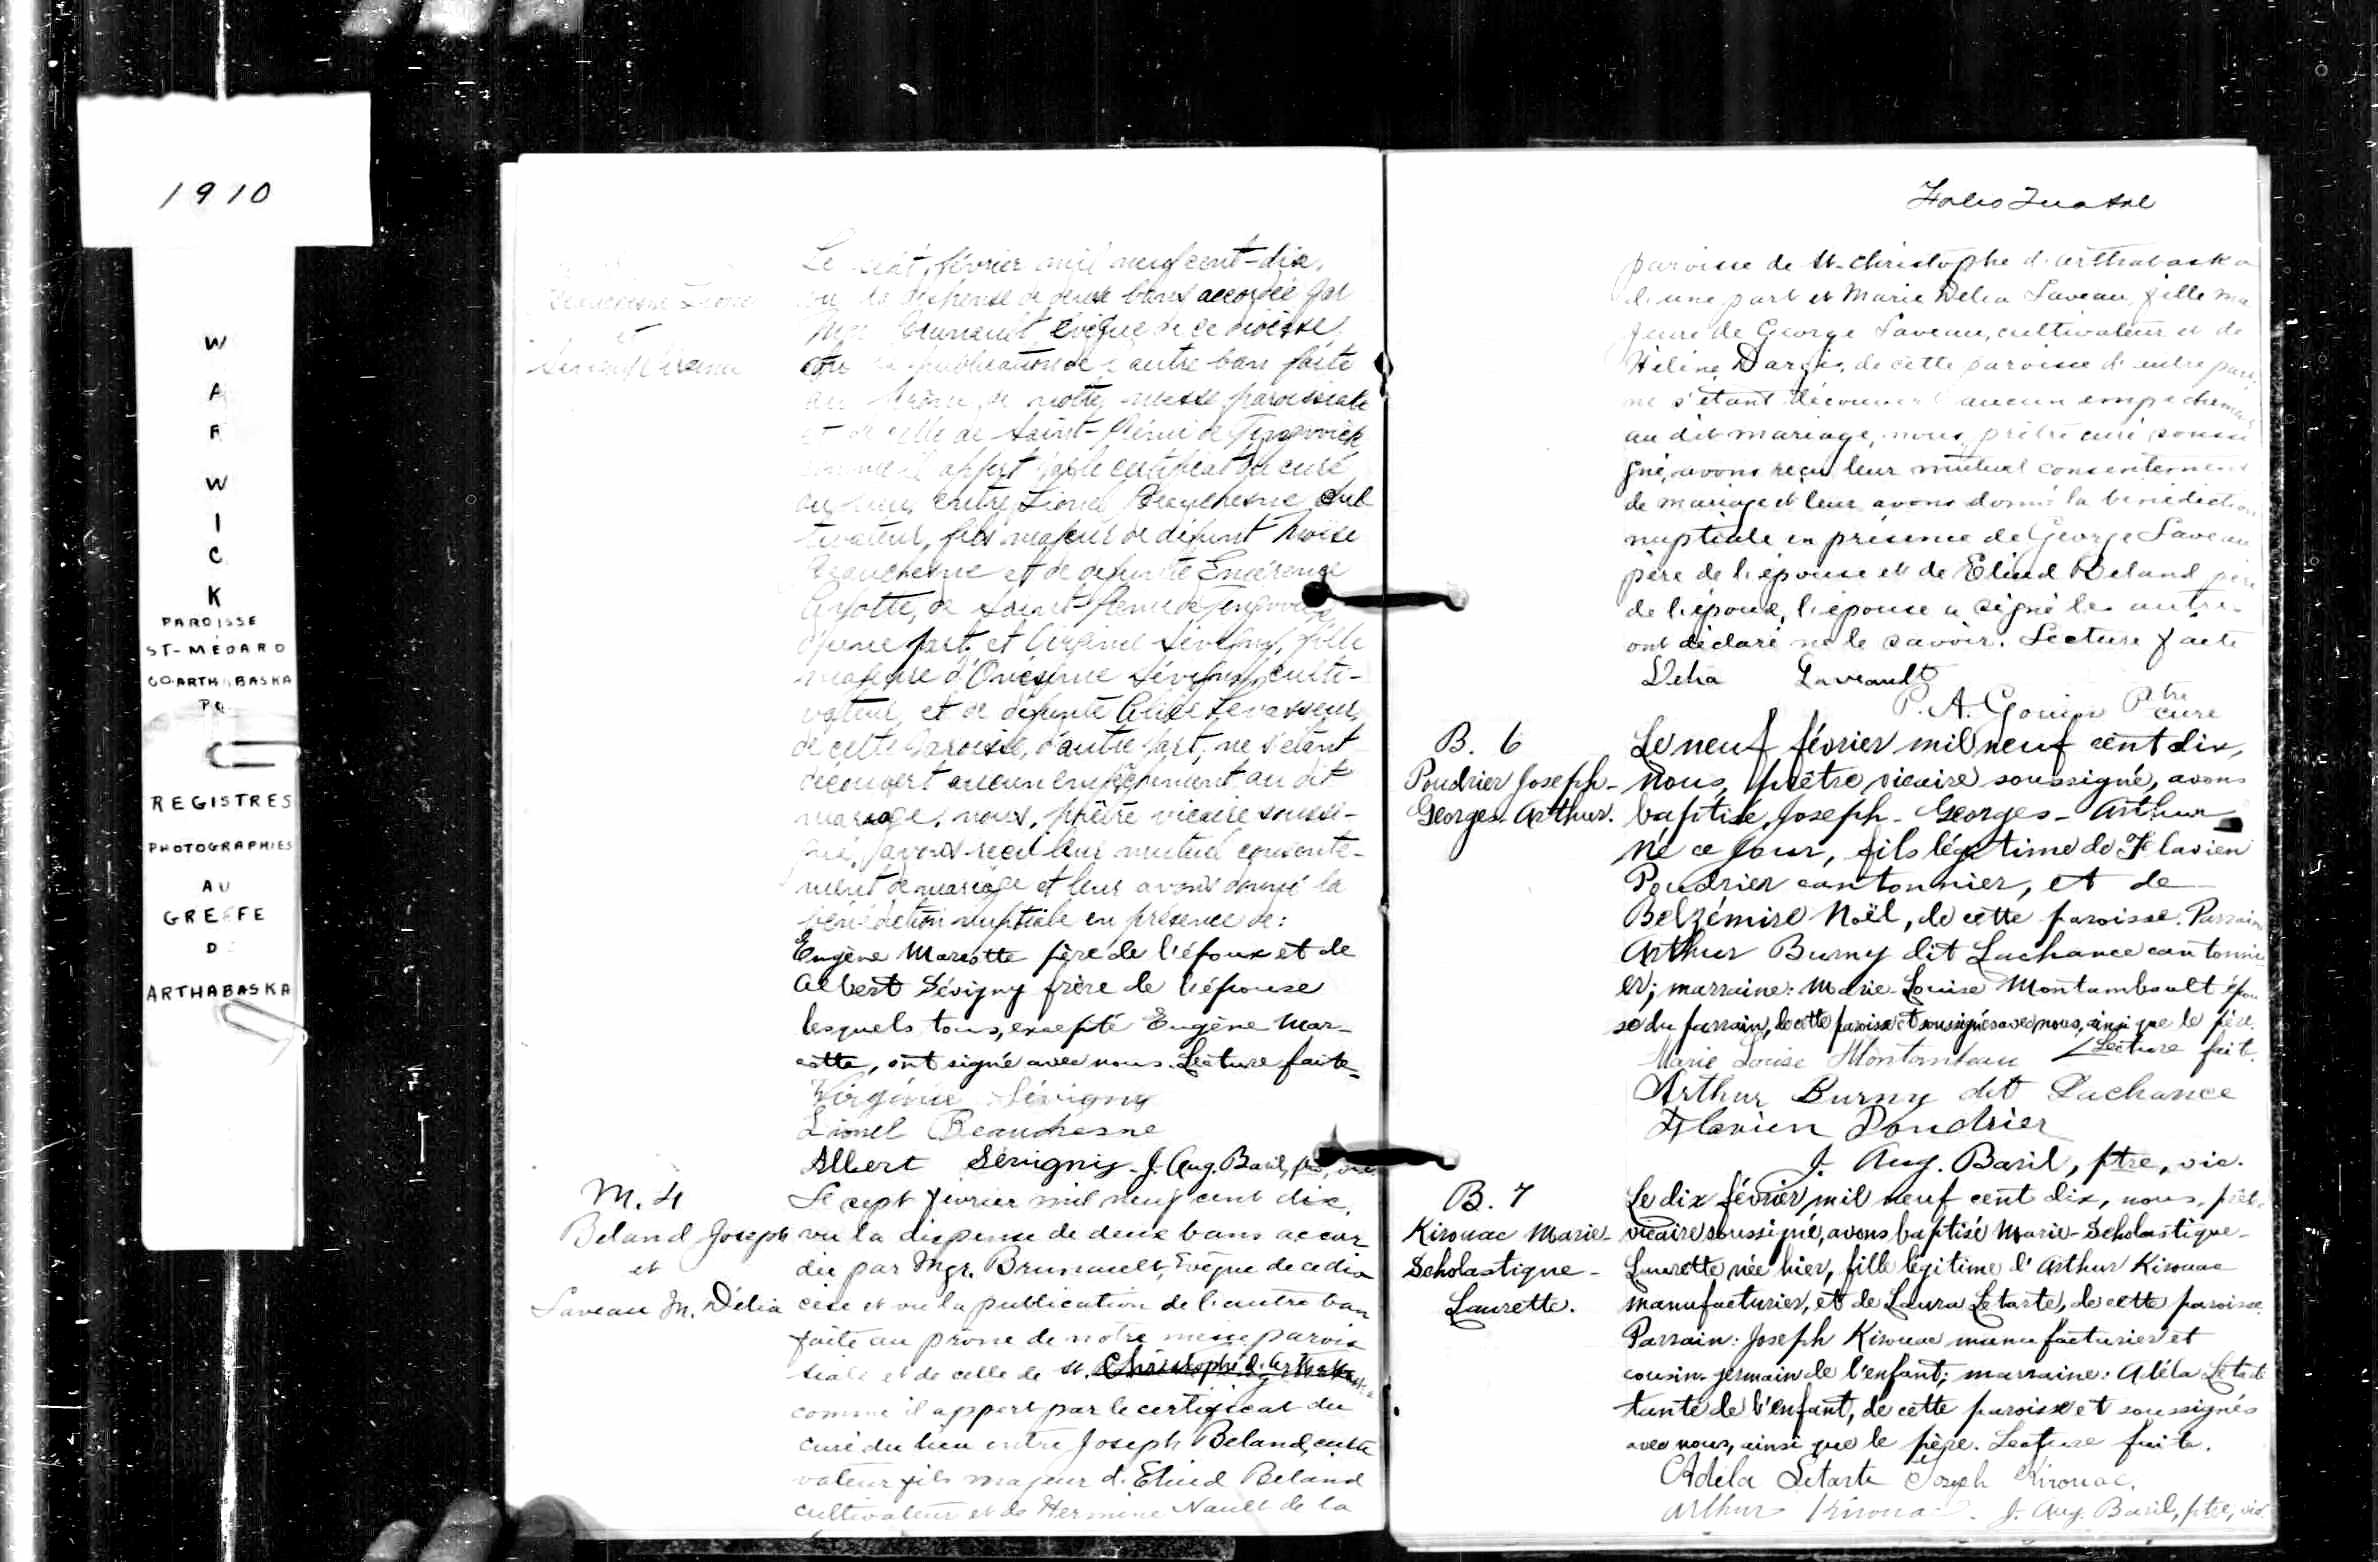 1910
W
A
R
W
I
C
K
PAROISSE
ST-MÉDARD
CO. ARTHABASKA
P.Q.
REGISTRES
PHOTOGRAPHIES
AU
GREFFE
D
ARTHABASKA
Le sept février mil neuf cent-dix,
vu la dispense de deux bans accordée par
Mgr Brunault, évêque de ce diocèse,
vu la publication de l'autre ban faite
au prône de notre messe paroissiale
et de celle de Saint-Rémi de Tingwick
comme il appert par le certificat du curé
du lieu, entre Lionel Beauchesne cul
tivateur, fils majeur de défunt Moïse
Beauchesne et de défunte Émérence
de Saint-Rémi de Tingwick
d'une part, et Sévigny, fille
majeure d'Onésime Sévigny, culti-
vateur, et de défunte Levasseur,
de cette paroisse, d'autre part, ne s'étant
découvert aucun empêchement au dit
mariage, nous, prêtre vicaire soussi-
gné, avons reçu leur mutuel consente-
ment de mariage et leur avons donné la
bénédiction nuptiale en présence de:
Eugène Marcotte père de l'époux et de
Albert Sévigny frère de l'épouse
lesquels tous, excepté Eugène Mar-
cotte, ont signé avec nous. Lecture faite
Virginie Sévigny
Lionel Beauchesne
Albert Sévigny J. Aug. Baril, ptre, vic.
M. 4
Beland Joseph
et
Laveau M. Délia
Le sept février mil neuf cent dix,
vu la dispense de deux bans accor
dée par Mgr. Brunault, Evêque de ce dio
cèse et vu la publication de l'autre ban
faite au prône de notre messe parois
siale et de celle de St. Christophe d'Arthabaska
comme il appert par le certificat du
curé du lieu entre Joseph Beland, culti
vateur fils majeur d'Eliud Beland
cultivateur et de Hermine Nault de la
Folio Quatre
paroisse de St-Christophe d'Arthabaska
d'une part et Marie Delia Laveau, fille ma
jeure de George Laveau, cultivateur et de
Héline Dargis, de cette paroisse d'autre part,
ne s'étant découvert aucun empechement
au dit mariage, nous, prêtre curé soussi
gné, avons reçu leur mutuel consentement
de mariage et leur avons donné la bénédiction
nuptiale en présence de George Laveau
père de l'épouse et de Eliud Beland père
de l'époux, l'épouse a signé les autres
ont déclaré ne le savoir. Lecture faite
Delia Laveault
P. A. Gouin Ptre curé
B. 6
Poudrier Joseph-
Georges-Arthur.
Le neuf février mil neuf cent dix,
nous, prêtre vicaire soussigné, avons
baptisé, Joseph-Georges-Arthur
né ce jour, fils légitime de Flavien
Poudrier cantonnier, et de
Belzémire Noël, de cette paroisse. Parrain
Arthur Burny dit Lachance cantonni
er; marraine: Marie-Louise Montambault épou
se du parrain, de cette paroisse et soussignés avec nous, ainsi que le père.
Lecture faite.
Marie Louise Montambau
Arthur Burny dit Lachance
Flavien Poudrier
J. Aug. Baril, ptre, vic.
B. 7
Kirouac Marie-
Scholastique-
Laurette.
Le dix février mil neuf cent dix, nous, prêt.
vicaire soussigné, avons baptisé Marie-Scholastique-
Laurette née hier, fille légitime d'Arthur Kirouac
manufacturier, et de Laura Letarte, de cette paroisse.
Parrain: Joseph Kirouac manufacturier et
cousin-germain de l'enfant; marraine: Adéla Letarte
tante de l'enfant, de cette paroisse et soussignés
avec nous, ainsi que le père. Lecture faite.
Adéla Letarte Joseph Kirouac.
Arthur Kirouac. J. Aug. Baril, ptre, vic.